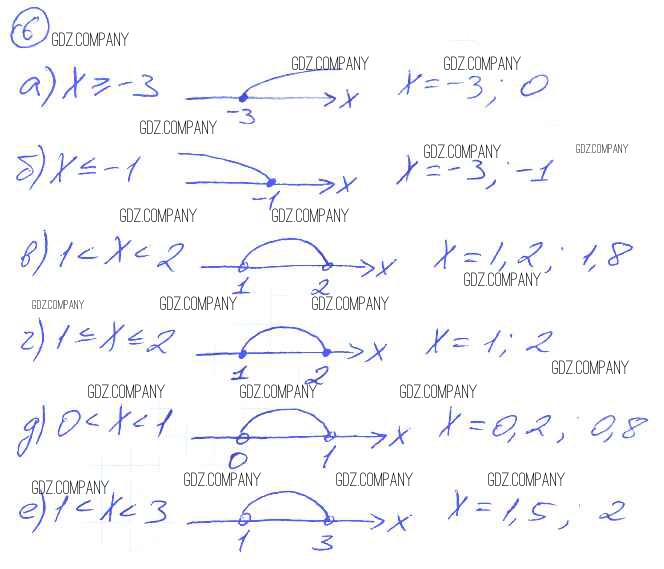 6 GDZ.COMPANY
GDZ.COMPANY GDZ.COMPANY
а) x ≥ -3 -3 x x = -3; 0
GDZ.COMPANY
GDZ.COMPANY GDZ.COMPANY
б) x ≤ -1 -1 x x = -3; -1
GDZ.COMPANY GDZ.COMPANY
в) 1 < x < 2 1 2 x x = 1,2; 1,8
GDZ.COMPANY
GDZ.COMPANY GDZ.COMPANY GDZ.COMPANY
г) 1 ≤ x ≤ 2 1 2 x x = 1; 2
GDZ.COMPANY
GDZ.COMPANY GDZ.COMPANY GDZ.COMPANY
д) 0 < x < 1 0 1 x x = 0,2; 0,8
GDZ.COMPANY GDZ.COMPANY GDZ.COMPANY GDZ.COMPANY
е) 1 < x < 3 1 3 x x = 1,5; 2